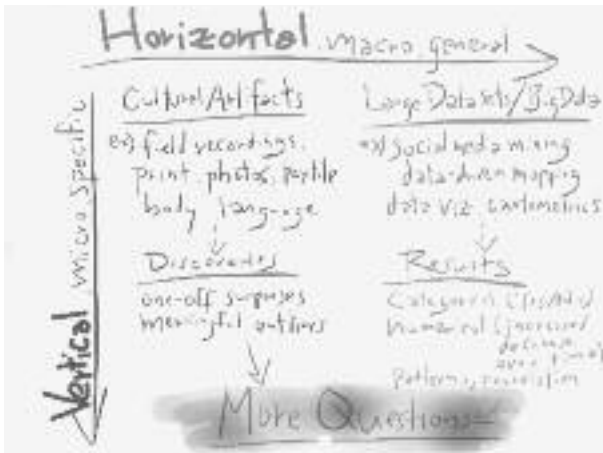 Horizontal macro, general
Vertical micro, specific
Cultural Artifacts
ex) field recordings,
print, photos, textile
body language
Discoveries
one-off surprises
meaningful outliers
Large Datasets/Big Data
ex) social media mining
data-driven mapping
data viz,
Results
Categorical
Numerical (increase/
decrease
over time)
Patterns, correlation
More Questions